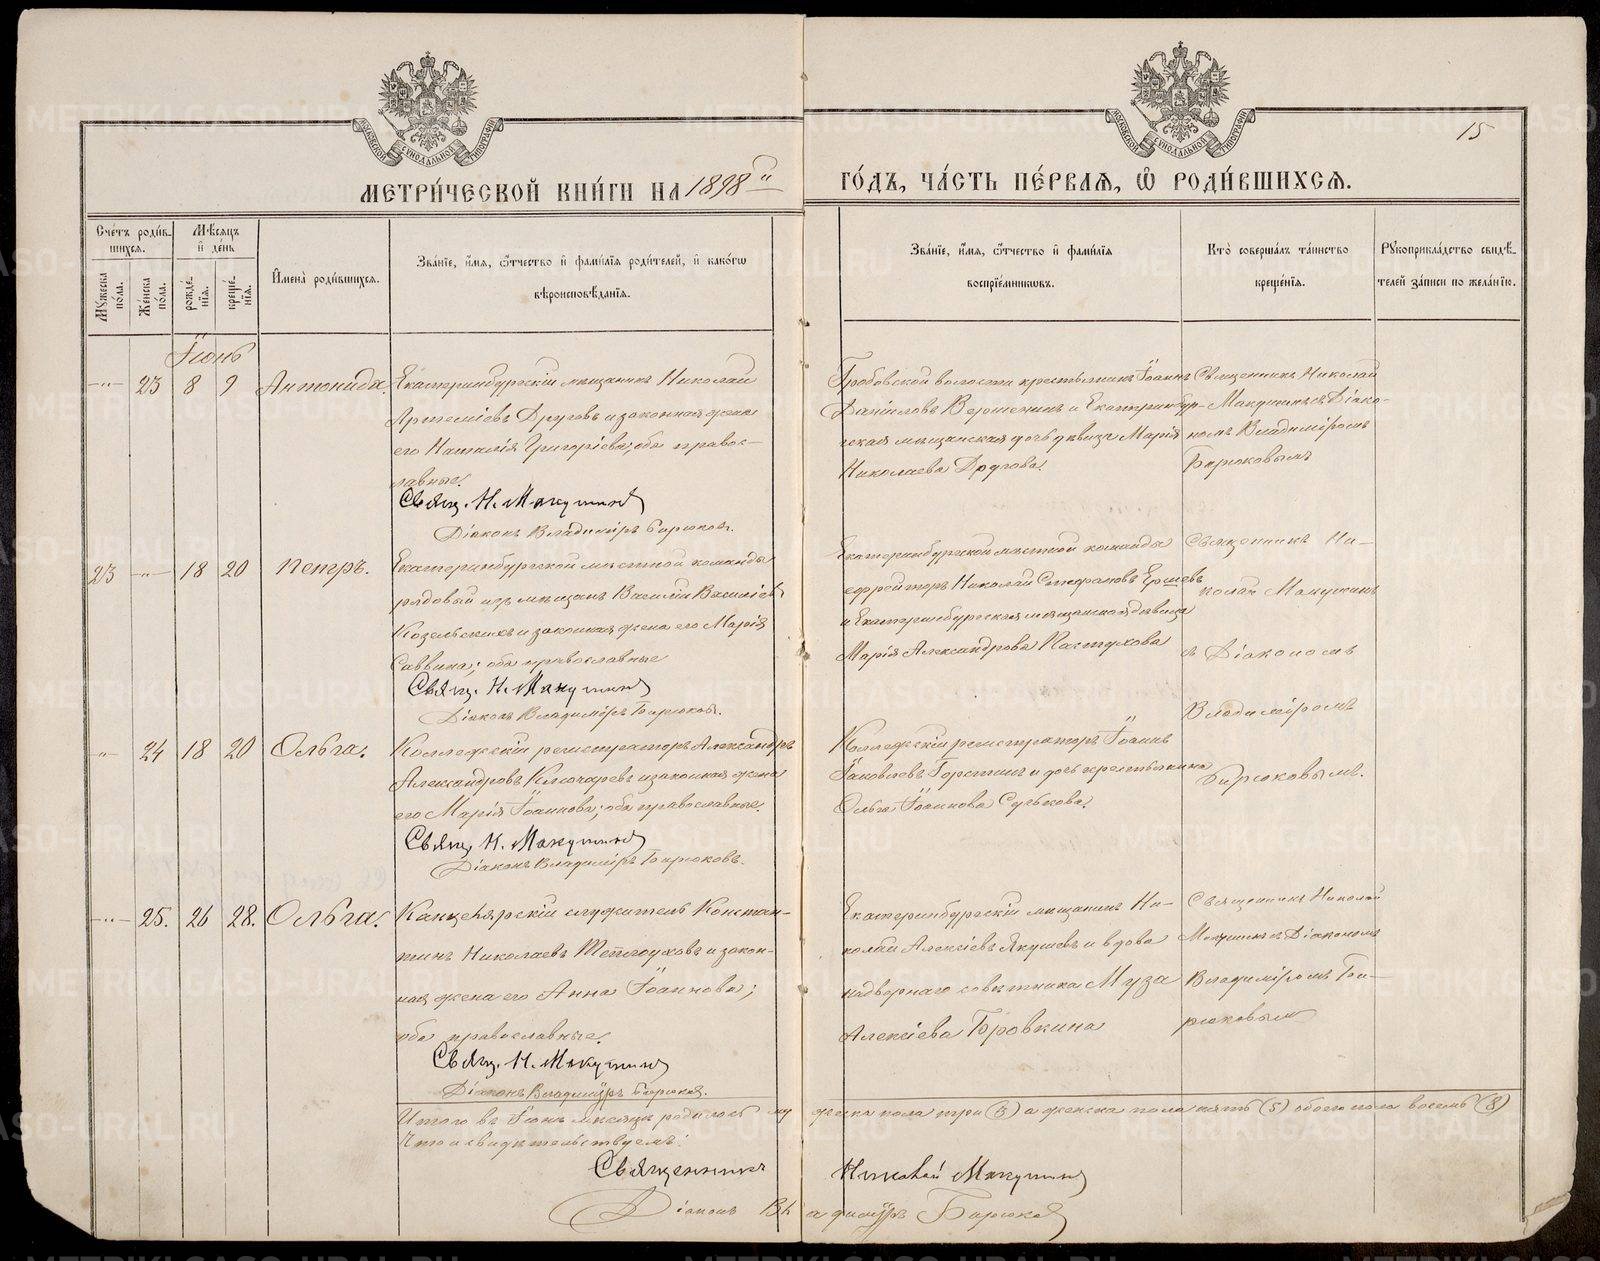 МОСКОВСКОЙ СѴНОДАЛЬНОЙ ТИПОГРАФІИ
МОСКОВСКОЙ СѴНОДАЛЬНОЙ ТИПОГРАФІИ
15
МЕТРИ́ЧЕСКОЙ КНИ́ГИ НА 1898й
ГО́ДЪ, ЧА́СТЬ ПЕ́РВАѦ, Ѡ҆ РОДИ́ВШИХСѦ.
Сче́тъ роди́в-
шихсѧ.
Мѣ́сѧцъ
и҆ де́нь
Мꙋ́жеска
по́ла.
Же́нска
по́ла.
рожде́-
нїѧ.
креще́-
нїѧ.
И҆мена̀ роди́вшихсѧ.
Зва́нїе, и҆́мѧ, ѻ҆́тчество и҆ фами́лїѧ роди́телей, и҆ како́гѡ
вѣроисповѣ́данїѧ.
Зва́нїе, и҆́мѧ, ѻ҆́тчество и҆ фами́лїѧ
воспрїе́мникѡвъ.
Кто̀ соверша́лъ та́инство
креще́нїѧ.
Рꙋкоприкла́дство свидѣ́-
телей за́писи по жела́нїю.
Іюнь
—"— 23 8 9 Антонида.
Екатеринбургскій мѣщанинъ Николай
Артеміевъ Друговъ и законная жена
его Наталія Григоріева; оба правос-
лавные.
Свящ. Н. Макушинъ
Діаконъ Владиміръ Бирюковъ.
Гробовской волости крестьянинъ Іоаннъ
Даніиловъ Вершининъ и Екатеринбур-
гская мѣщанская дочь дѣвица Марія
Николаева Другова.
Священникъ Николай
Макушинъ съ Діако-
номъ Владиміромъ
Бирюковымъ
23 —"— 18 20 Петръ.
Екатеринбургской мѣстной команды
рядовый изъ мѣщанъ Василій Василіевъ
Козельскихъ и законная жена его Марія
Саввина; оба православные
Свящ. Н. Макушинъ
Діаконъ Владиміръ Бирюковъ.
Екатеринбургской мѣстной команды
ефрейторъ Николай Стефановъ Ершевъ
и Екатеринбургская мѣщанская дѣвица
Марія Александрова Пастухова
Священникъ Ни-
колай Макушинъ
съ Діакономъ
Владиміромъ
Бирюковымъ.
—"— 24 18 20 Ольга.
Коллежскій регистраторъ Александръ
Александровъ Ключаревъ и законная жена
его Марія Іоаннова; оба православные.
Свящ. Н. Макушинъ
Діаконъ Владиміръ Бирюковъ.
Коллежскій регистраторъ Іоаннъ
Іаковлевъ и дочь крестьянина
Ольга Іоаннова
—"— 25. 26 28. Ольга.
Канцелярскій служитель Констан-
тинъ Николаевъ Теплоуховъ и закон-
ная жена его Анна Іоаннова;
оба православные.
Свящ. Н. Макушинъ
Діаконъ Владиміръ Бирюковъ.
Екатеринбургскій мѣщанинъ Ни-
колай Алексіевъ Якушевъ и вдова
надворнаго совѣтника Муза
Алексіева Бровкина
Священникъ Николай
Макушинъ съ Діакономъ
Владиміромъ Би-
рюковымъ
Итого въ Іюнѣ мѣсяцѣ родилось мужеска пола три (3) а женска пола пять (5) обоего пола восемь (8)
Что и свидѣтельствуемъ:
Священникъ Николай Макушинъ
Діаконъ Владиміръ Бирюковъ
METRIKI.GASO-URAL.RU